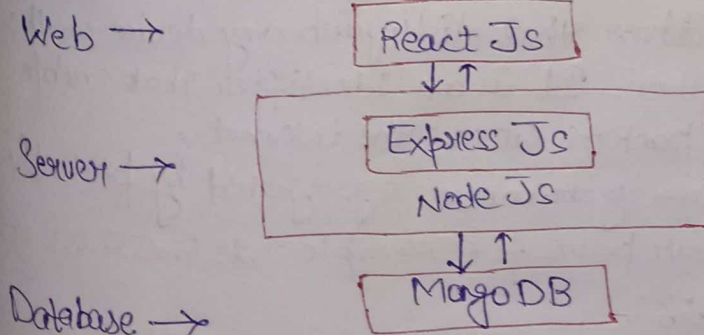 Web → React Js
↓ ↑
Server → Express Js
Node Js
↓ ↑
Database → MongoDB